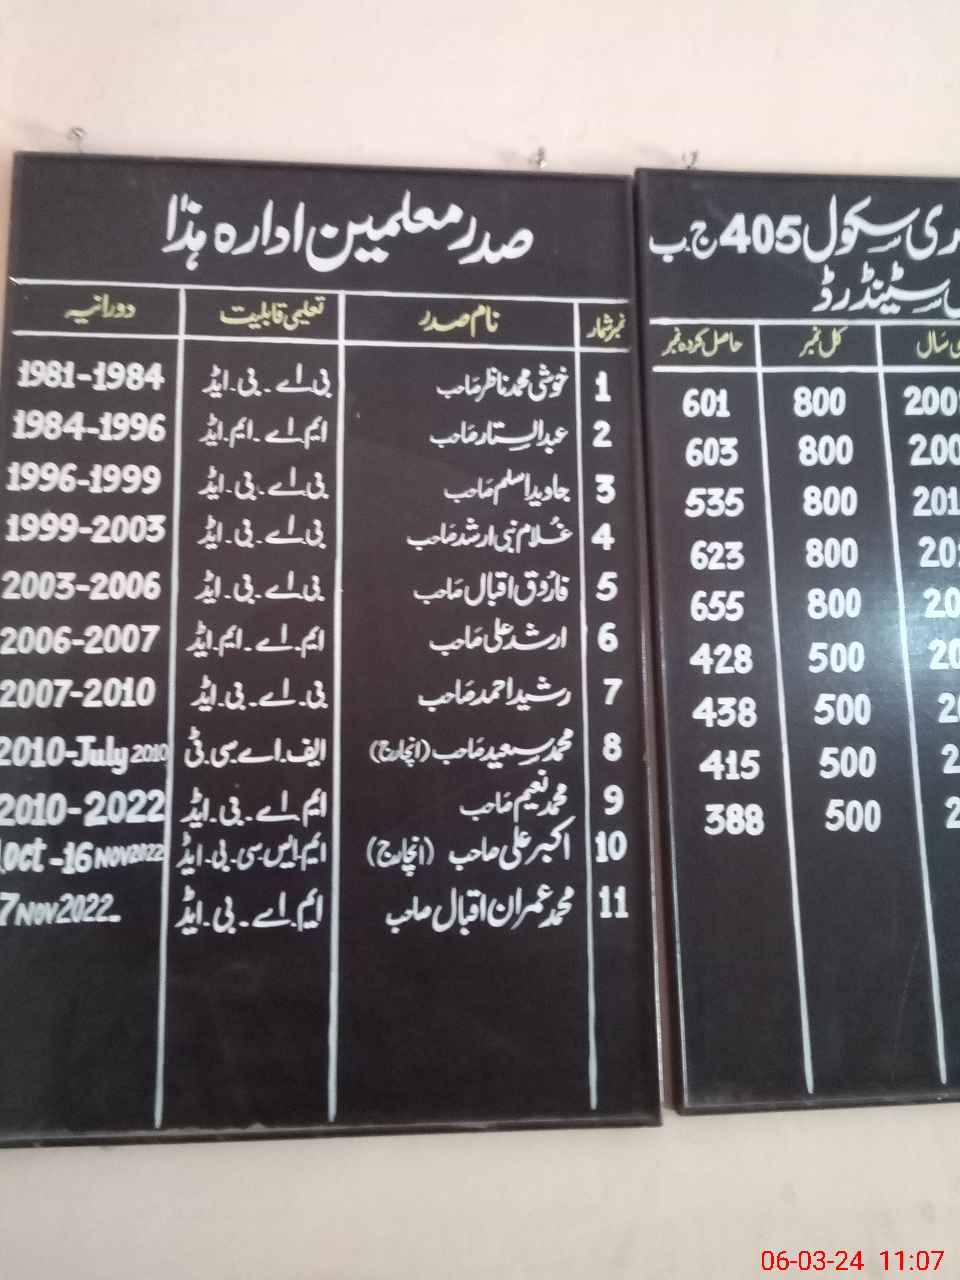 صدر معلمین ادارہ ہذا
نمبر شمار نام صدر تعلیمی قابلیت دورانیہ
1 خوشی محمد ناظر صاحب بی۔اے۔بی۔ایڈ 1981-1984
2 عبدالستار صاحب ایم۔اے۔ایم۔ایڈ 1984-1996
3 جاوید اسلم صاحب بی۔اے۔بی۔ایڈ 1996-1999
4 غلام نبی ارشد صاحب بی۔اے۔بی۔ایڈ 1999-2003
5 فاروق اقبال صاحب بی۔اے۔بی۔ایڈ 2003-2006
6 ارشد علی صاحب ایم۔اے۔ایم۔ایڈ 2006-2007
7 رشید احمد صاحب بی۔اے۔بی۔ایڈ 2007-2010
8 محمد سعید صاحب (انچارج) ایف۔اے۔سی۔ٹی 2010-July 2010
9 محمد نعیم صاحب ایم۔اے۔بی۔ایڈ 2010-2022
10 اکبر علی صاحب (انچارج) ایم۔ایس۔سی۔بی۔ایڈ oct -16 Nov 2022
11 محمد عمران اقبال صاحب ایم۔اے۔بی۔ایڈ 7 Nov 2022
سکول 405 ج۔ب
سٹینڈرڈ
سال کل نمبر حاصل کردہ نمبر
800 601
800 603
800 535
800 623
800 655
500 428
500 438
500 415
500 388
06-03-24 11:07